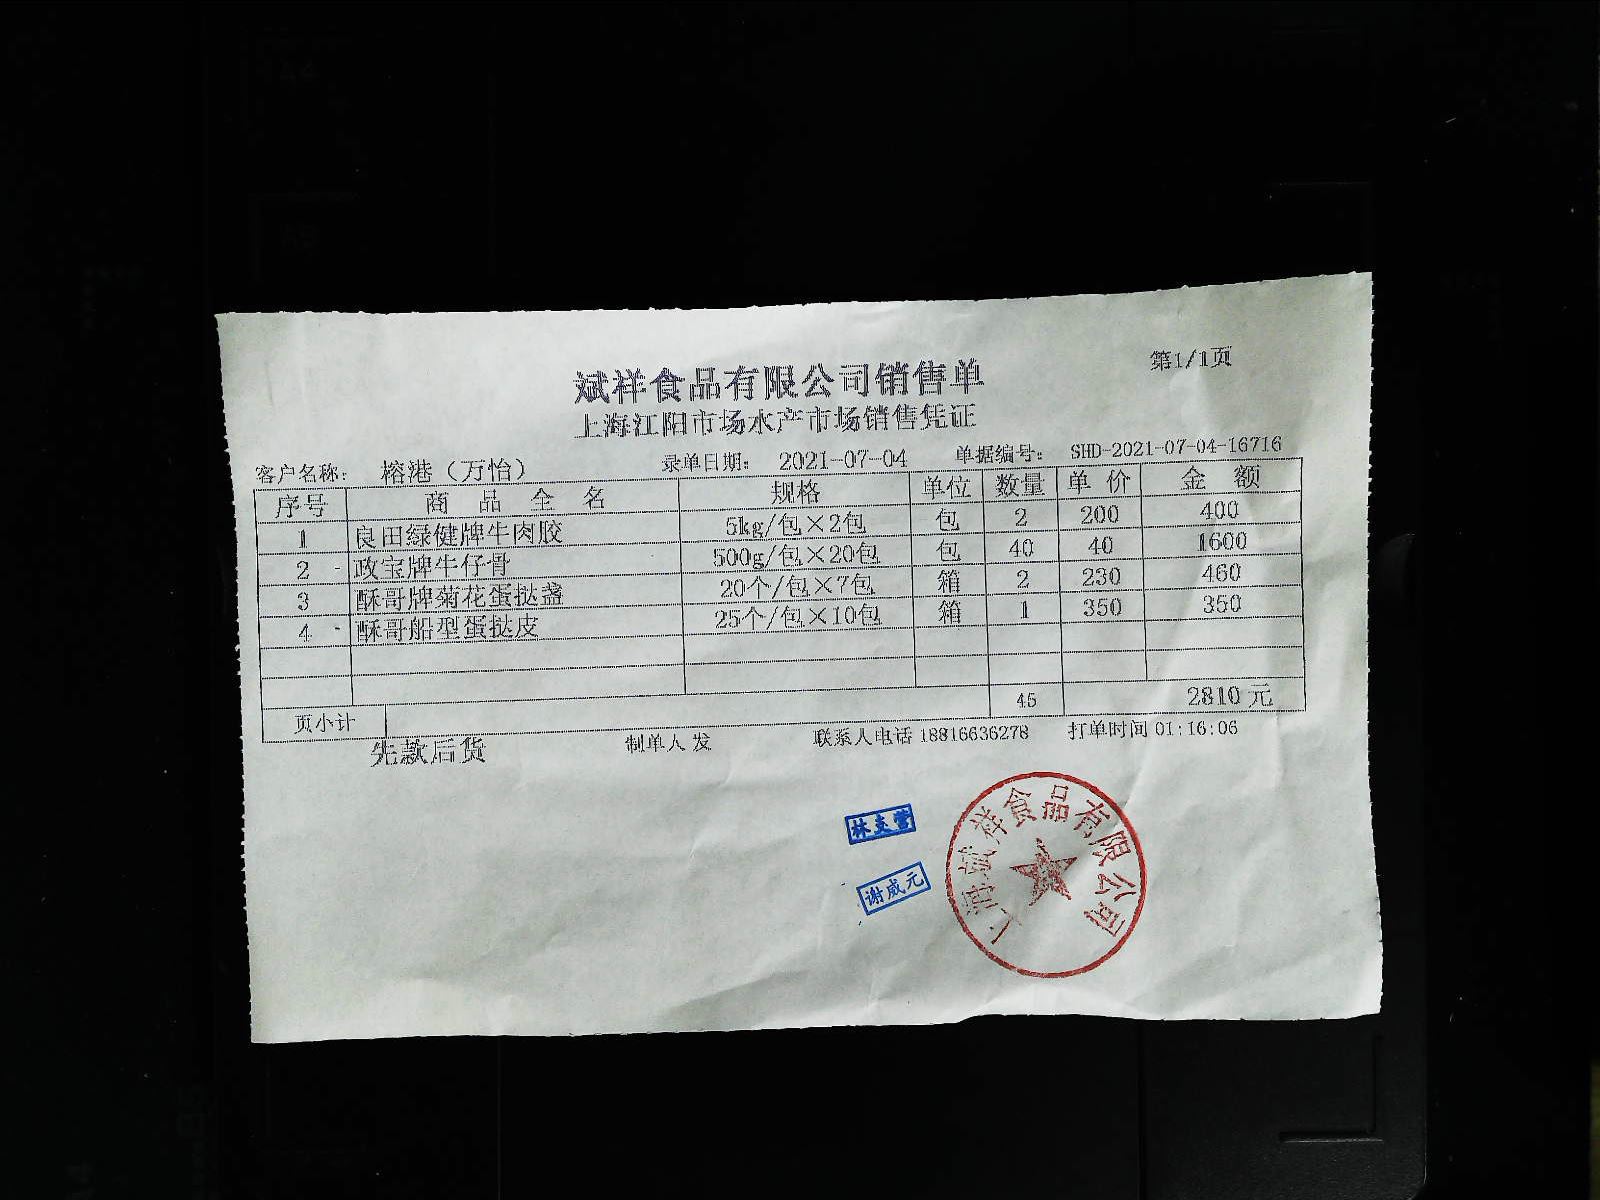 第1/1页
斌祥食品有限公司销售单
上海江阳市场水产市场销售凭证
客户名称: 榕港（万怡） 录单日期: 2021-07-04 单据编号: SHD-2021-07-04-16716
序号 商品全名 规格 单位 数量 单价 金额
1 良田绿健牌牛肉胶 5kg/包×2包 包 2 200 400
2 政宝牌牛仔骨 500g/包×20包 包 40 40 1600
3 酥哥牌菊花蛋挞盏 20个/包×7包 箱 2 230 460
4 酥哥船型蛋挞皮 25个/包×10包 箱 1 350 350
页小计 45 2810 元
先款后货 制单人 发 联系人电话 18816636278 打单时间 01:16:06
谢威元
上海斌祥食品有限公司